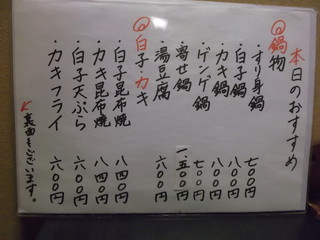 本日のおすすめ
◎鍋物
・すり身鍋 七〇〇円
・白子鍋 八〇〇円
・カキ鍋 八〇〇円
・ゲンゲ鍋 七〇〇円
・寄せ鍋 一、五〇〇円
・湯豆腐 六〇〇円
◎白子・カキ
・白子昆布焼 八四〇円
・カキ昆布焼 八四〇円
・白子天ぷら 六〇〇円
・カキフライ 六〇〇円
↙裏面もございます。